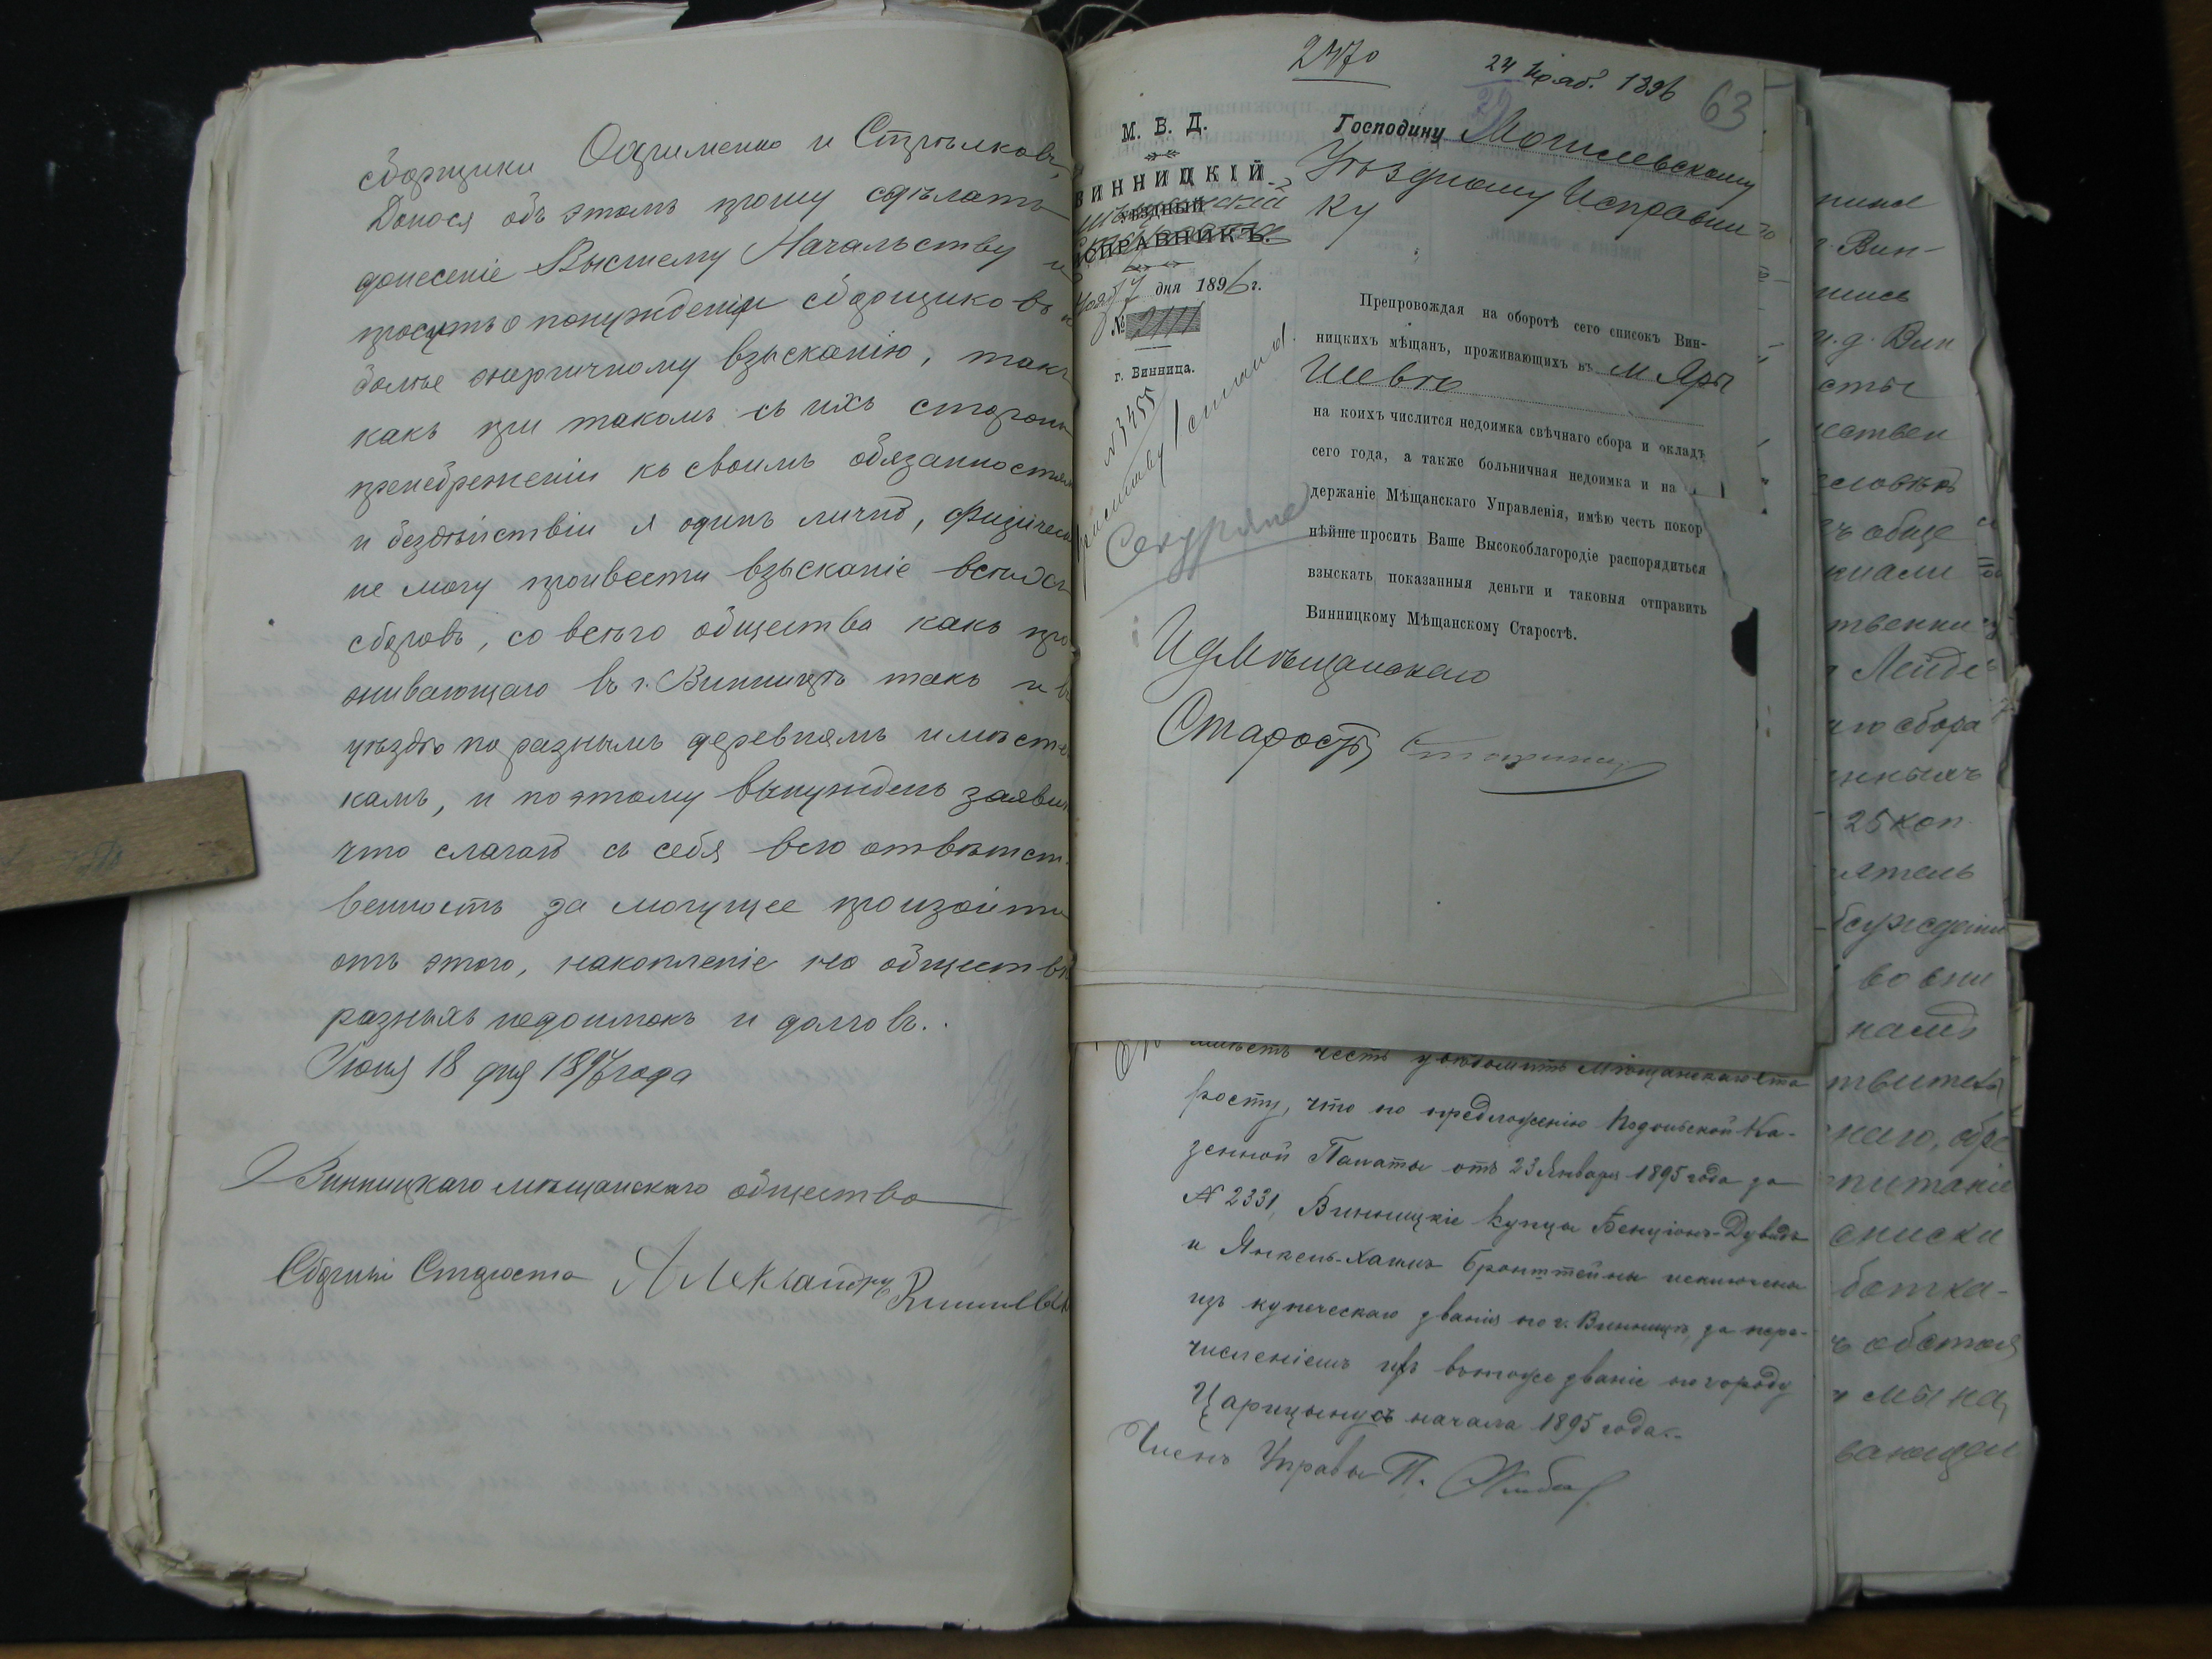 сборщики Охрименко и Стрѣлковъ,
Донося объ этомъ прошу сдѣлать
донесеніе Высшему Начальству и
просить о понужденіи сборщиковъ к
болѣе энергичному взысканію, такъ
какъ при такомъ съ ихъ стороны
пренебреженіи къ своимъ обязанностям
и бездѣйствіи я одинъ лично, физически
не могу произвести взысканіе всѣхъ
сборовъ, со всего общества какъ про
живающаго въ г. Винницѣ такъ и въ
уѣздѣ по разнымъ деревнямъ и мѣстеч
камъ, и поэтому вынужденъ заявит
что слагаю съ себя всю отвѣтст
венность за могущее произойти
отъ этого, накопленіе на обществѣ
разныхъ недоимокъ и долговъ.
Іюня 18 дня 1897 года
Винницкаго мѣщанскаго общества
Сборный Староста Александръ
2470
24 Нояб. 1896
63
М. В. Д.
ВИННИЦКІЙ
УѢЗДНЫЙ
ИСПРАВНИКЪ.
Нояб 7 дня 1896 г.
№
г. Винница.
№ 3455
приставу 1 стана
Секуряне
Господину Могилевскому
Уѣздному Исправни
ку
Препровождая на оборотѣ сего списокъ Вин-
ницкихъ мѣщанъ, проживающихъ въ м Яры
шевѣ
на коихъ числится недоимка свѣчнаго сбора и окладъ
сего года, а также больничная недоимка и на
держаніе Мѣщанскаго Управленія, имѣю честь покор
нѣйше просить Ваше Высокоблагородіе распорядиться
взыскать показанныя деньги и таковыя отправить
Винницкому Мѣщанскому Старостѣ.
И Д Мѣщанскаго
Старосты
имѣетъ честь увѣдомить Мѣщанскаго Ста
росту, что по предложенію Подольской Ка-
зенной Палаты отъ 23 Января 1895 года за
№ 2331, Винницкіе купцы Бенціонъ-Дувидъ
и Янкель-Хаимъ Бронштейны исключены
изъ купеческаго званія по г. Винницѣ, за пере-
численіемъ ихъ въ тоже званіе по городу
Царицыну съ начала 1895 года.
Членъ Управы П.
г. Вин-
и. д. Вин
сты
ествен
словѣд
ъ обще
твенни
го сбора
нныхъ
25 коп.
ятель
во вни
наго, обре
питанія
списки
ботка-
ъ обстоя
и мы на,
вающем